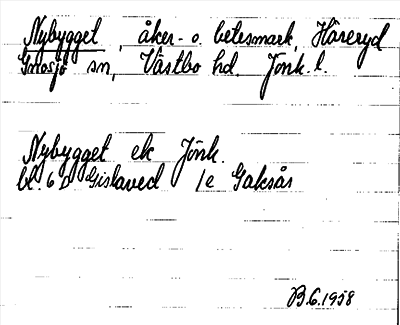 Nybygget, åker- o. betesmark, Håreryd
Gnosjö sn, Västbo hd. Jönk. l.
Nybygget ek Jönk.
bl. 6 D Gislaved 1e Gaksås
B.G. 1958